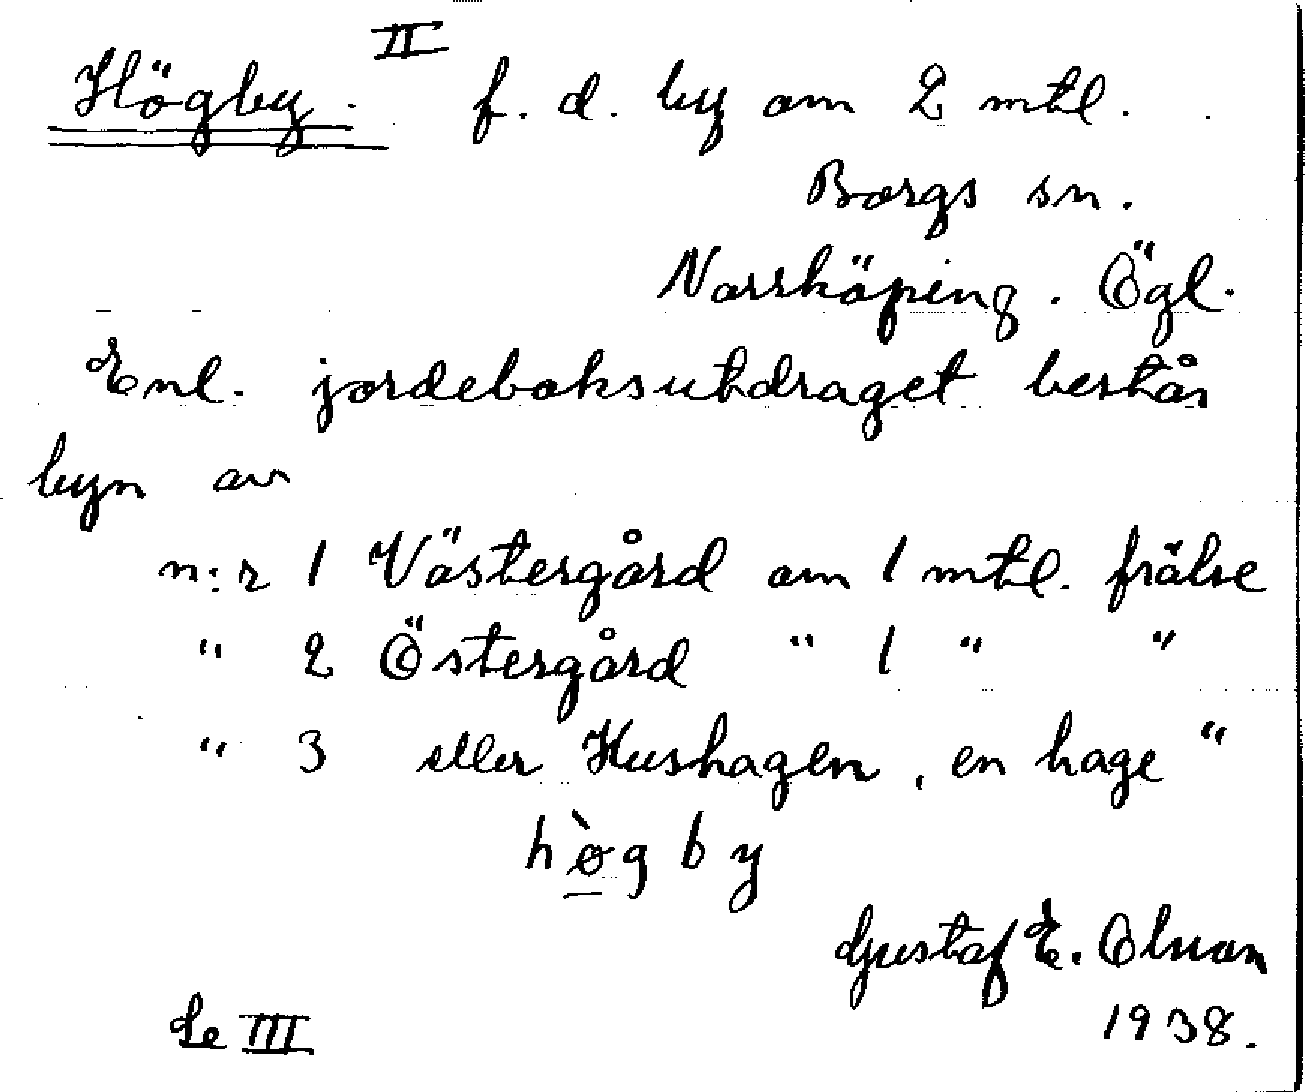 Högby. II f. d. by om 2 mtl.
Borgs sn.
Norrköping. Ögl.
Enl. jordeboksutdraget består
byn av
n:r 1 Västergård om 1 mtl. frälse
" 2 Östergård " 1 " "
" 3 eller Hushagen, en hage "
hø̀gby
Gustaf E. Olsson
1938.
Se III